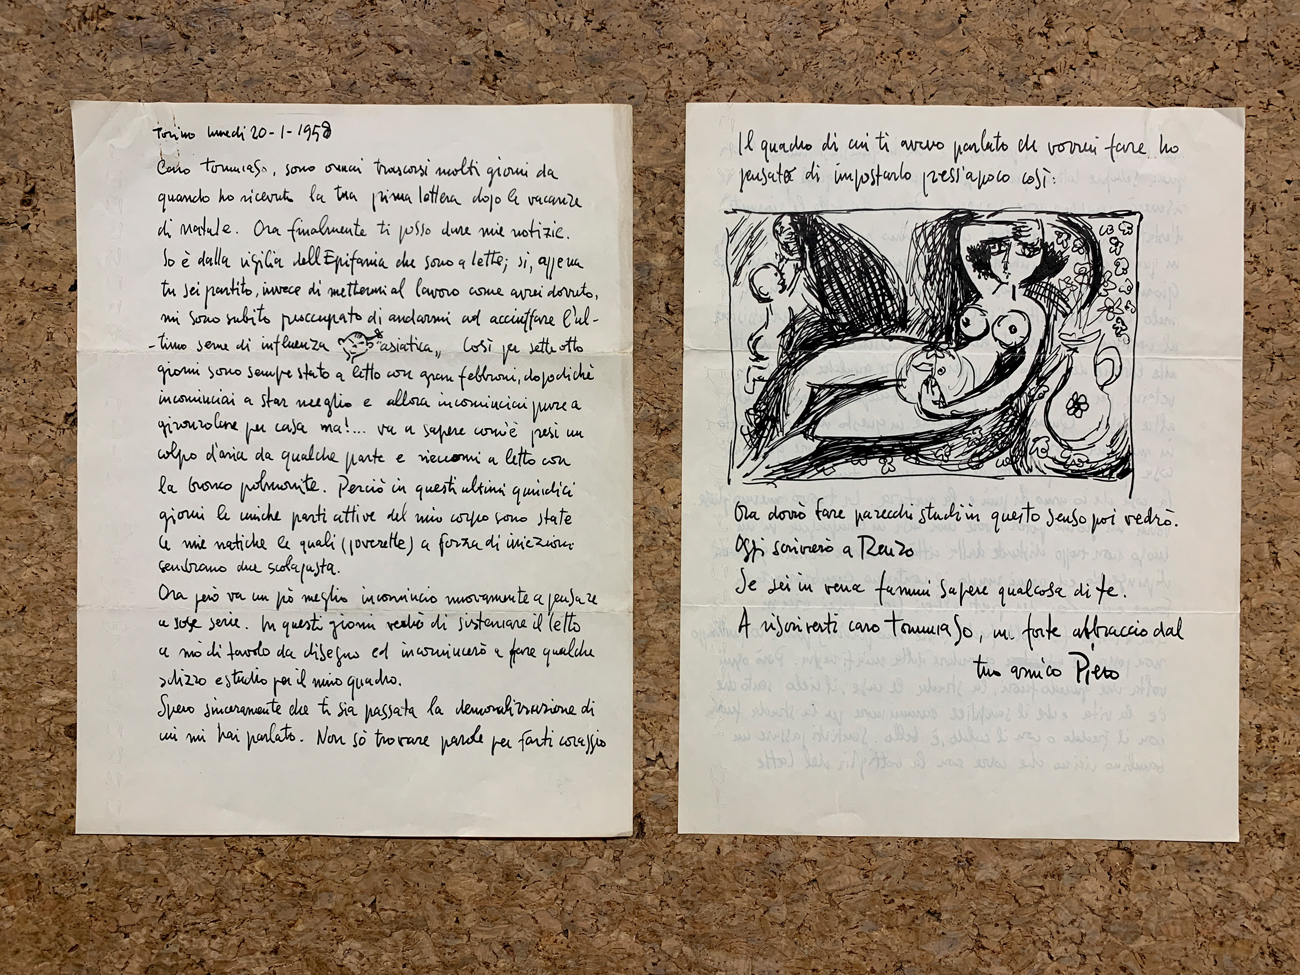 Torino lunedì 20-1-1958
Caro Tommaso, sono ormai trascorsi molti giorni da
quando ho ricevuto la tua prima lettera dopo le vacanze
di natale. Ora finalmente ti posso dare mie notizie.
Io è dalla vigilia dell'Epifania che sono a letto; si, appena
tu sei partito, invece di mettermi al lavoro come avrei dovuto,
mi sono subito preoccupato di andarmi ad acciuffare l'ul-
-timo seme di influenza "asiatica„ Così per sette otto
giorni sono sempre stato a letto con gran febbroni, dopodiché
incominciai a star meglio e allora incominciai pure a
gironzolare per casa ma!... va a sapere com'è presi un
colpo d'aria da qualche parte e rieccomi a letto con
la bronco polmonite. Perciò in questi ultimi quindici
giorni le uniche parti attive del mio corpo sono state
le mie natiche le quali (poverette) a forza di iniezioni
sembrano due scolapasta.
Ora però va un pò meglio incomincio nuovamente a pensare
a cose serie. In questi giorni vedrò di sistemare il letto
a mò di tavolo da disegno ed incomincerò a fare qualche
schizzo e studio per il mio quadro.
Spero sinceramente che ti sia passata la demoralizzazione di
cui mi hai parlato. Non sò trovare parole per farti coraggio
Il quadro di cui ti avevo parlato che vorrei fare ho
pensato di impostarlo press'apoco così:
Ora dovrò fare parecchi studi in questo senso poi vedrò.
Oggi scriverò a Renzo
Se sei in vena fammi sapere qualcosa di te.
A riscriverti caro Tommaso, un forte abbraccio dal
tuo amico Piero